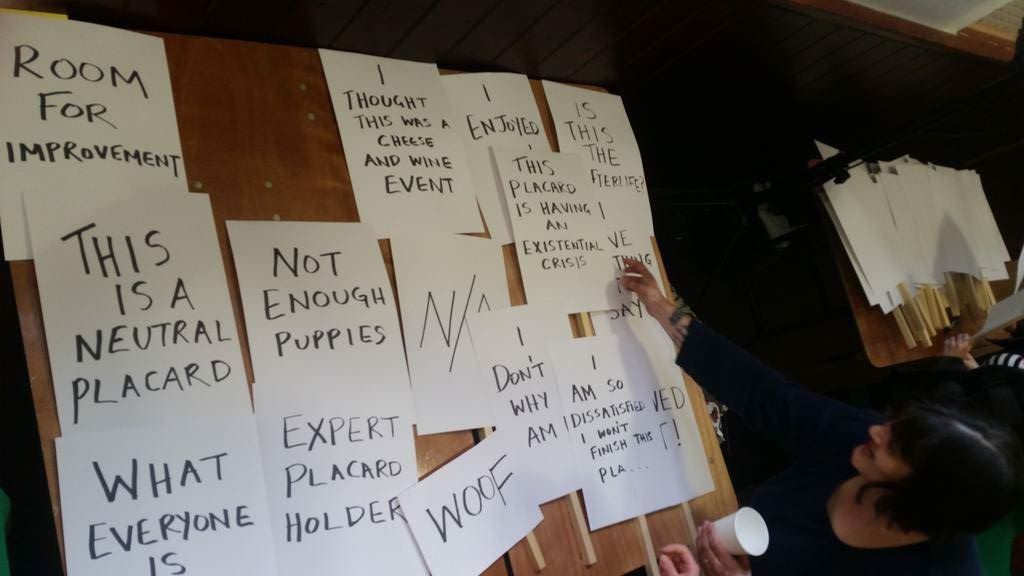 ROOM
FOR
IMPROVEMENT
THIS
IS A
NEUTRAL
PLACARD
WHAT
EVERYONE
IS
NOT
ENOUGH
PUPPIES
EXPERT
PLACARD
HOLDER
I
THOUGHT
THIS WAS A
CHEESE
AND WINE
EVENT
I
ENJOYED
THIS
PLACARD
IS HAVING
AN
EXISTENTIAL
CRISIS
IS
THIS
THE
FTERLIFE?
I
VE
THING
SAY
N/A
I
DON'T
WHY
AM I
WOOF
I
AM SO
DISSATISFIED
I WON'T
FINISH THIS
PLA...
VED
!